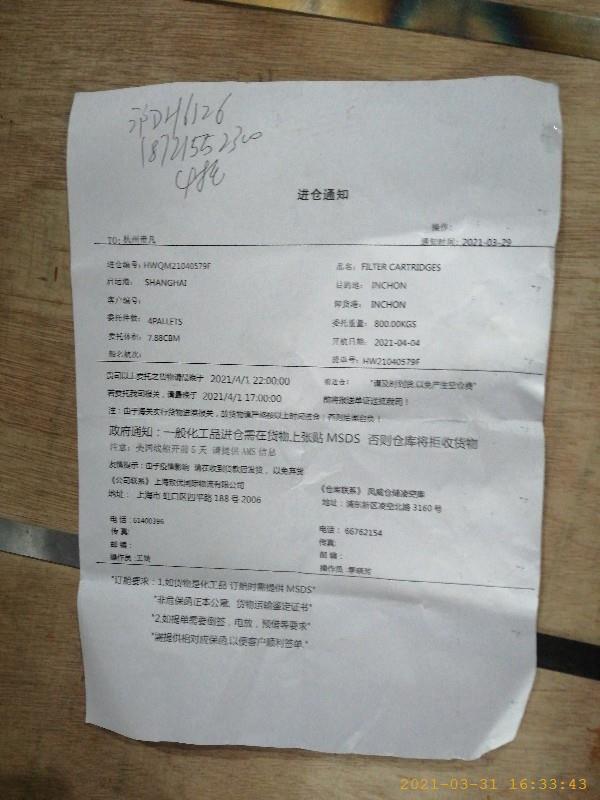 沪DH6126
18721552300
4托
进仓通知
操作:
TO: 杭州贵凡 通知时间: 2021-03-29
进仓编号: HWQM21040579F 品名: FILTER CARTRIDGES
启运港: SHANGHAI 目的港: INCHON
客户编号: 卸货港: INCHON
委托件数: 4PALLETS 委托重量: 800.00KGS
委托体积: 7.88CBM 开航日期: 2021-04-04
船名航次: 提单号: HW21040579F
贵司以上委托之货物请最晚于 2021/4/1 22:00:00 前进仓: "请及时到货,以免产生空仓费"
若委托我司报关, 请最晚于 2021/4/1 17:00:00 前将报送单证送抵我司!
注: 由于海关实行货物进港报关, 故货物请严格按以上时间进仓; 否则后果自负!
政府通知: 一般化工品进仓需在货物上张贴 MSDS 否则仓库将拒收货物
注意: 美两线船开前 5 天 请提供 AMS 信息
友情提示: 由于疫情影响 请在收到付款后发货, 以免弃货
《公司联系》上海致优国际物流有限公司 《仓库联系》 凤威仓储凌空库
地址: 上海市 虹口区四平路 188 号 2006 地址: 浦东新区凌空北路 3160 号
电话: 61400396 电话: 66762154
传真: 传真:
邮编: 邮编:
操作员: 操作员:
"订舱要求: 1,如货物是化工品 订舱时需提供 MSDS"
"非危保函正本公章, 货物运输鉴定证书"
"2,如提单需要倒签, 电放, 预借等要求"
"请提供相对应保函,以便客户顺利签单."
2021-03-31 16:33:43